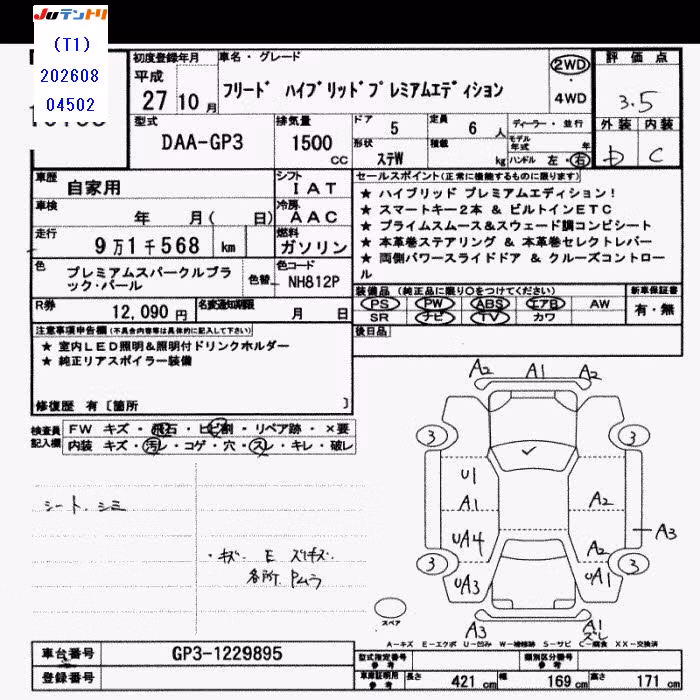 Juテントリ
(T1)
202608
04502
初度登録年月
平成
27 10月
車名・グレード
フリード ハイブリッドプレミアムエディション
2WD
・
4WD
評価点
3.5
外装 内装
D C
型式
DAA-GP3
排気量
1500
CC
ドア 5
定員 6 人
形状 ステW
積載 kg
ディーラー・並行
モデル年式 年
ハンドル 左・右
車歴 自家用
シフト IAT
車検 年 月( 日)
冷房 AAC
走行 9万1千568 km
燃料 ガソリン
色 プレミアムスパークルブラック・パール
色替
色コード NH812P
R券 12,090円
名変通知期限 月 日
セールスポイント(正常に機能するものに限ります)
★ ハイブリッド プレミアムエディション!
★ スマートキー2本 & ビルトインETC
★ プライムスムース&スウェード調コンビシート
★ 本革巻ステアリング & 本革巻セレクトレバー
★ 両側パワースライドドア & クルーズコントロール
装備品(純正品に限り○をつけてください)
新車保証書
PS PW ABS エアB AW
SR ナビ TV カワ
有・無
後日品
注意事項申告欄(不具合内容等は具体的に記入して下さい)
★ 室内LED照明&照明付ドリンクホルダー
★ 純正リアスポイラー装備
修復歴 有〔箇所 〕
検査員記入欄
FW キズ・飛石・ヒビ割・リペア跡・×要
内装 キズ・汚レ・コゲ・穴・スレ・キレ・破レ
シート、シミ
・キズ E スリキズ
各所 Pムラ
A2 A1 A2
3 3
U1
A1 A2
UA4 A2 A3
3 3
UA3 UA1
A3 A1
ズレ
スペア
A-キズ E-エクボ U-凹み W-補修跡 S-サビ C-腐食 XX-交換済
車台番号 GP3-1229895
登録番号
型式指定番号 参考
類別区分番号 参考
車庫証明用 参考
長さ 421cm 幅 169cm 高さ 171cm